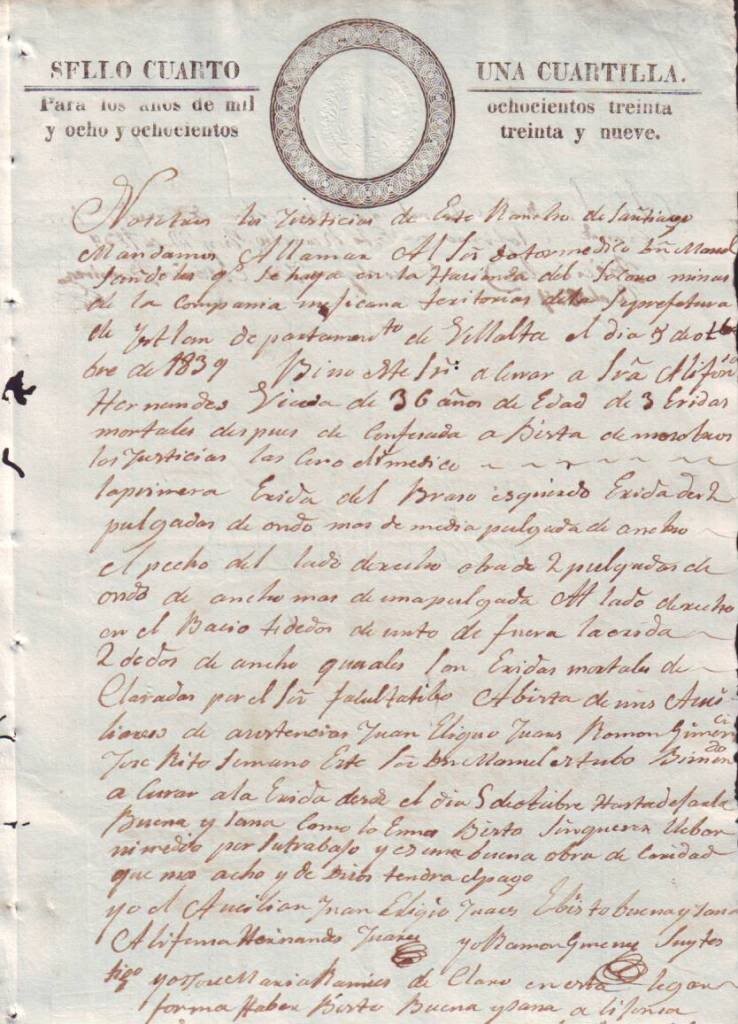 SELLO CUARTO
UNA CUARTILLA.
Para los años de mil
ochocientos treinta
y ocho y ochocientos
treinta y nueve.
Nosotros los Justicias de Este Rancho de Santiago
Mandamos Allamar Al Sor dotor medico Dn Manuel
qe se haya en la Hacienda del Socoro minas
de la Compania mejicana territorios de la Suprefetura
de Departamento de Villalta el dia 5 de otu
bre de 1839 Bino Este Sr: a Curar a Sra Alifonsa
Hernandes Viuda de 36 años de Edad de 3 Eridas
mortales despues de Confesada a Bista de nosotros
los Justicias las Curo el medico
la primera Erida del Braso isquierdo Erida de 2
pulgadas de ondo mas de media pulgada de ancho
el pecho del lado derecho otra de 2 pulgadas de
ondo de ancho mas de una pulgada Al lado derecho
en el Bacio 4 dedos de unto de fuera la erida
2 dedos de ancho quales son Eridas mortales de
Claradas por el Sor facultatibo Abista de mis Auci
liares de asistencias Juan Eligio Juares Ramon Gimenes
Jose Rito Serrano Este Sor Dn Manuel estubo Biniendo
a Curar ala Erida desde el dia 5 de otubre Hasta dejarla
Buena y Sana Como lo Emos Bisto Sinqueren llebar
ni medio por Sutrabajo y es una buena obra de Caridad
que nos acho y de Dios tendra elpago
yo el Auciliar Juan Eligio Juares E bisto buena y sana
Alifonsa Hernandes Juarez yo Ramon Gimenes Soy tes
tigo yo Jose Maria Ramires de Claro en esta legar
forma Haber Bisto Buena y sana a lifonsa